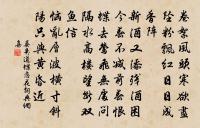 卷絮風頭寒欲盡
墜粉飄紅日日成
香陣
新酒又添殘酒困
今春不減前春恨
蝶去鶯飛無處問
隔水高樓望斷雙
魚信
惱亂層波橫寸斂斜
陽只與黃昏近
晏幾道蝶戀花